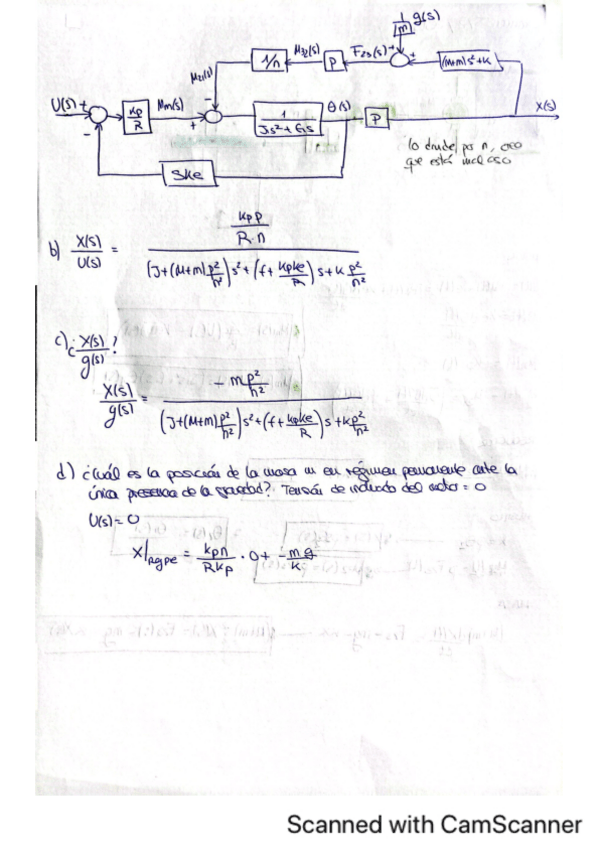 1/m g(s)
1/n M₂(s) P F₂₃(s) + + (M+m)s²+k
M₂₁(s)
U(s) + - kp/R Mm(s) + - 1/(Js²+fs) θ(s) P X(s)
Ske
lo divide por n, creo
que está mal eso
b) X(s)/U(s) = (kp p/(R·n)) / ((J+(M+m)p²/n²)s²+(f+kpke/R)s+k p²/n²)
c) ¿X(s)/g(s)?
X(s)/g(s) = (-m p²/n²) / ((J+(M+m)p²/n²)s²+(f+kpke/R)s+k p²/n²)
d) ¿Cuál es la posición de la masa m en régimen permanente ante la
única presencia de la gravedad? Tensión de inducido del motor = 0
U(s)=0
X|rgpe = kpn/Rkp · 0 + -mg/k
Scanned with CamScanner